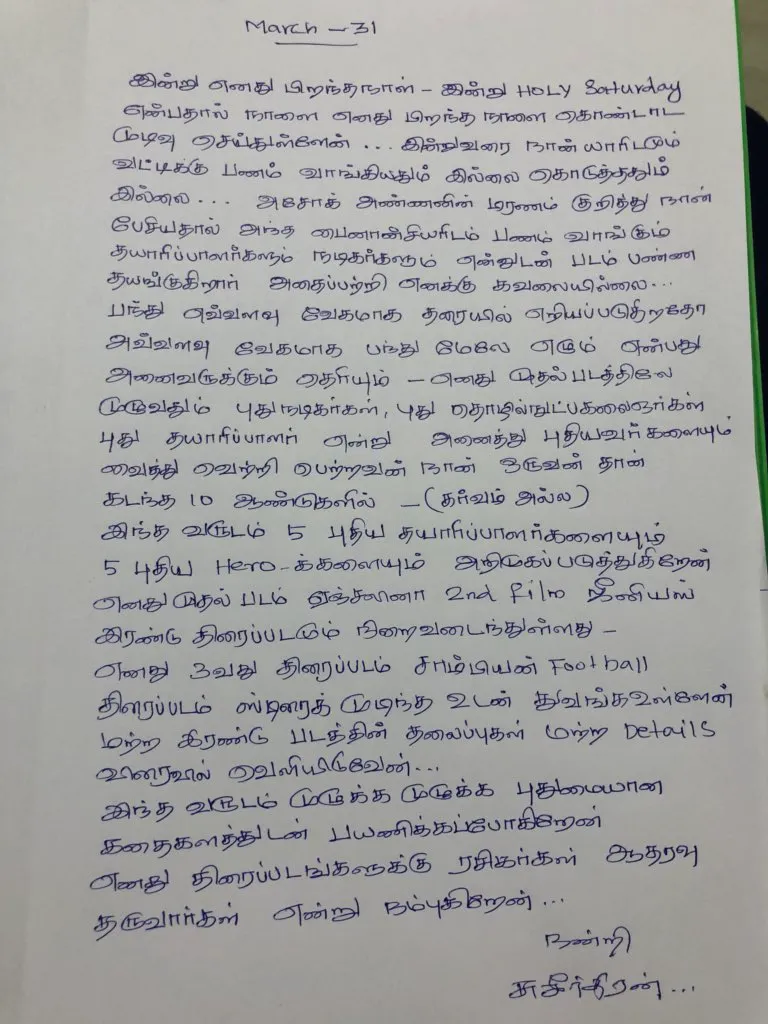 March - 31
இன்று எனது பிறந்தநாள் - இன்று HOLY Saturday
என்பதால் நாளை எனது பிறந்த நாளை கொண்டாட
முடிவு செய்துள்ளேன் ... இன்றுவரை நான் யாரிடமும்
வட்டிக்கு பணம் வாங்கியதும் இல்லை கொடுத்ததும்
இல்லை... அசோக் அண்ணனின் மரணம் குறித்து நான்
பேசியதால் அந்த பைனான்சியரிடம் பணம் வாங்கும்
தயாரிப்பாளர்களும் நடிகர்களும் என்னுடன் படம் பண்ண
தயங்குகிறார் அதைப்பற்றி எனக்கு கவலையில்லை...
பந்து எவ்வளவு வேகமாக தரையில் எறியப்படுகிறதோ
அவ்வளவு வேகமாக பந்து மேலே எழும் என்பது
அனைவருக்கும் தெரியும் - எனது முதல் படத்திலே
முழுவதும் புதுநடிகர்கள், புது தொழில்நுட்பகலைஞர்கள்
புது தயாரிப்பாளர் என்று அனைத்து புதியவர்களையும்
வைத்து வெற்றி பெற்றவன் நான் ஒருவன் தான்
கடந்த 10 ஆண்டுகளில் - (கர்வம் அல்ல)
இந்த வருடம் 5 புதிய தயாரிப்பாளர்களையும்
5 புதிய Hero-க்களையும் அறிமுகப்படுத்துகிறேன்
எனது முதல் படம் ஏஞ்சலினா 2nd film ஜீனியஸ்
இரண்டு திரைப்படமும் நிறைவடைந்துள்ளது -
எனது 3வது திரைப்படம் சாம்பியன் Football
திரைப்படம் ஸ்டிரைக் முடிந்த உடன் துவங்கஉள்ளேன்
மற்ற இரண்டு படத்தின் தலைப்புகள் மற்ற Details
விரைவில் வெளியிடுவேன்...
இந்த வருடம் முழுக்க முழுக்க புதுமையான
கதைகளத்துடன் பயணிக்கப்போகிறேன்
எனது திரைப்படங்களுக்கு ரசிகர்கள் ஆதரவு
தருவார்கள் என்று நம்புகிறேன்...
நன்றி
சுசீந்திரன்...